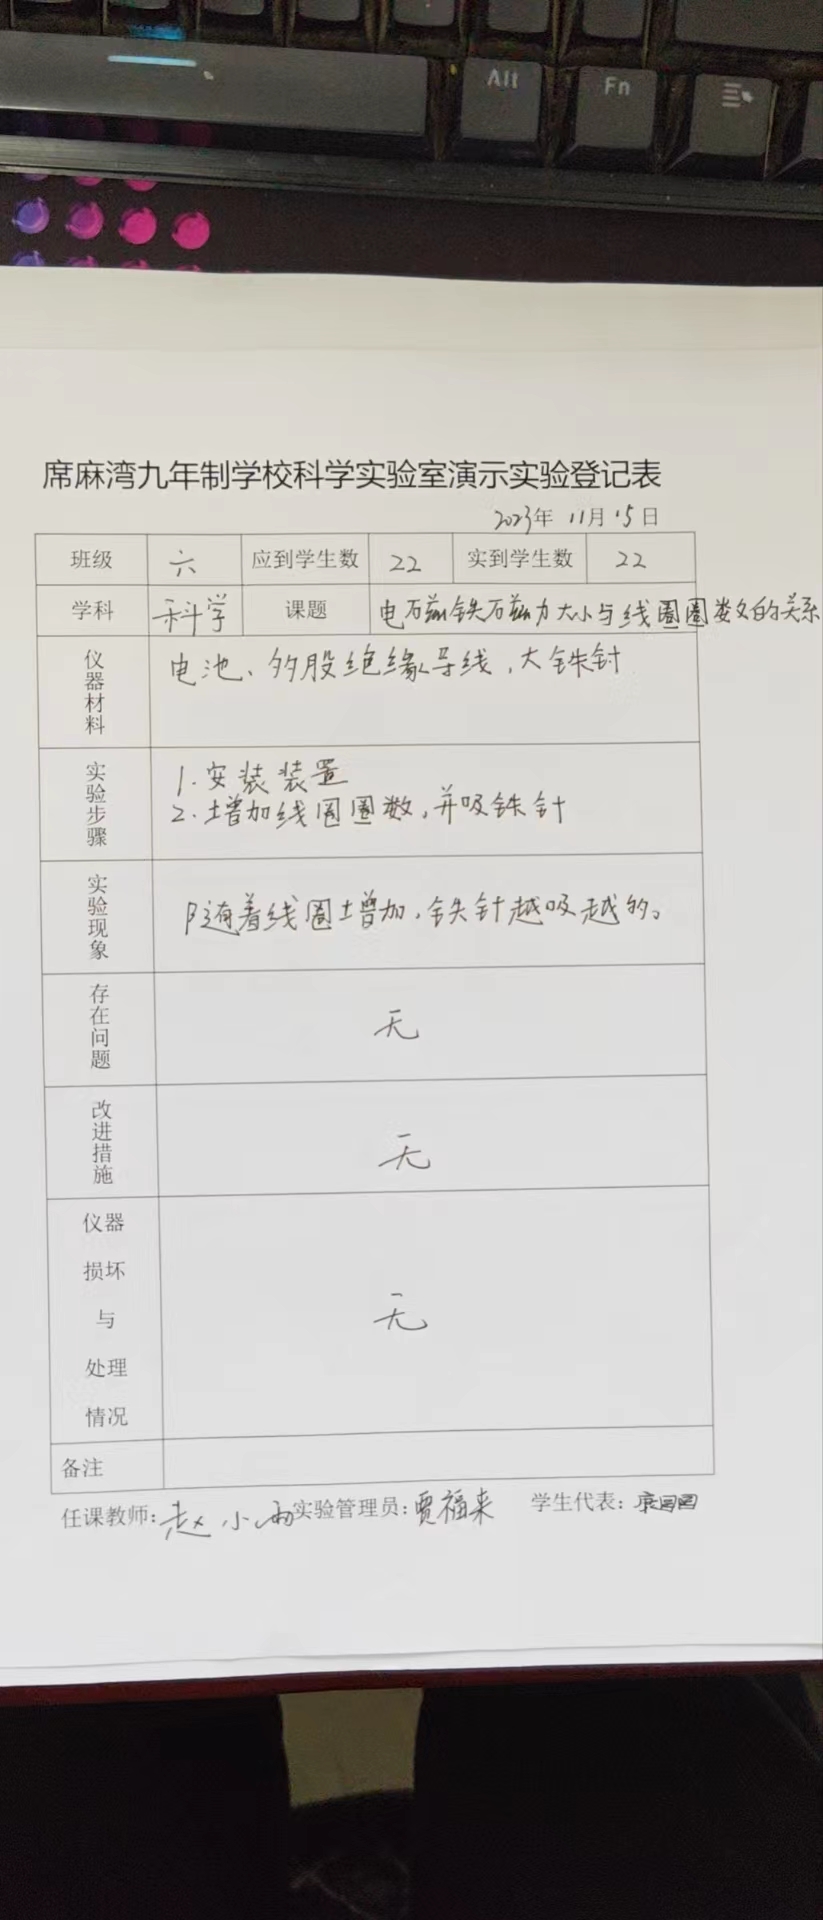 Alt Fn
席麻湾九年制学校科学实验室演示实验登记表
2023年 11月 15日
班级 六 应到学生数 22 实到学生数 22
学科 科学 课题 电磁铁磁力大小与线圈圈数的关系
仪器材料 电池、多股绝缘导线，大铁钉
实验步骤 1.安装装置
2.增加线圈圈数，并吸铁针
实验现象 随着线圈增加，铁针越吸越多。
存在问题 无
改进措施 无
仪器
损坏
与 无
处理
情况
备注
任课教师：赵小雨 实验管理员：贾福来 学生代表：